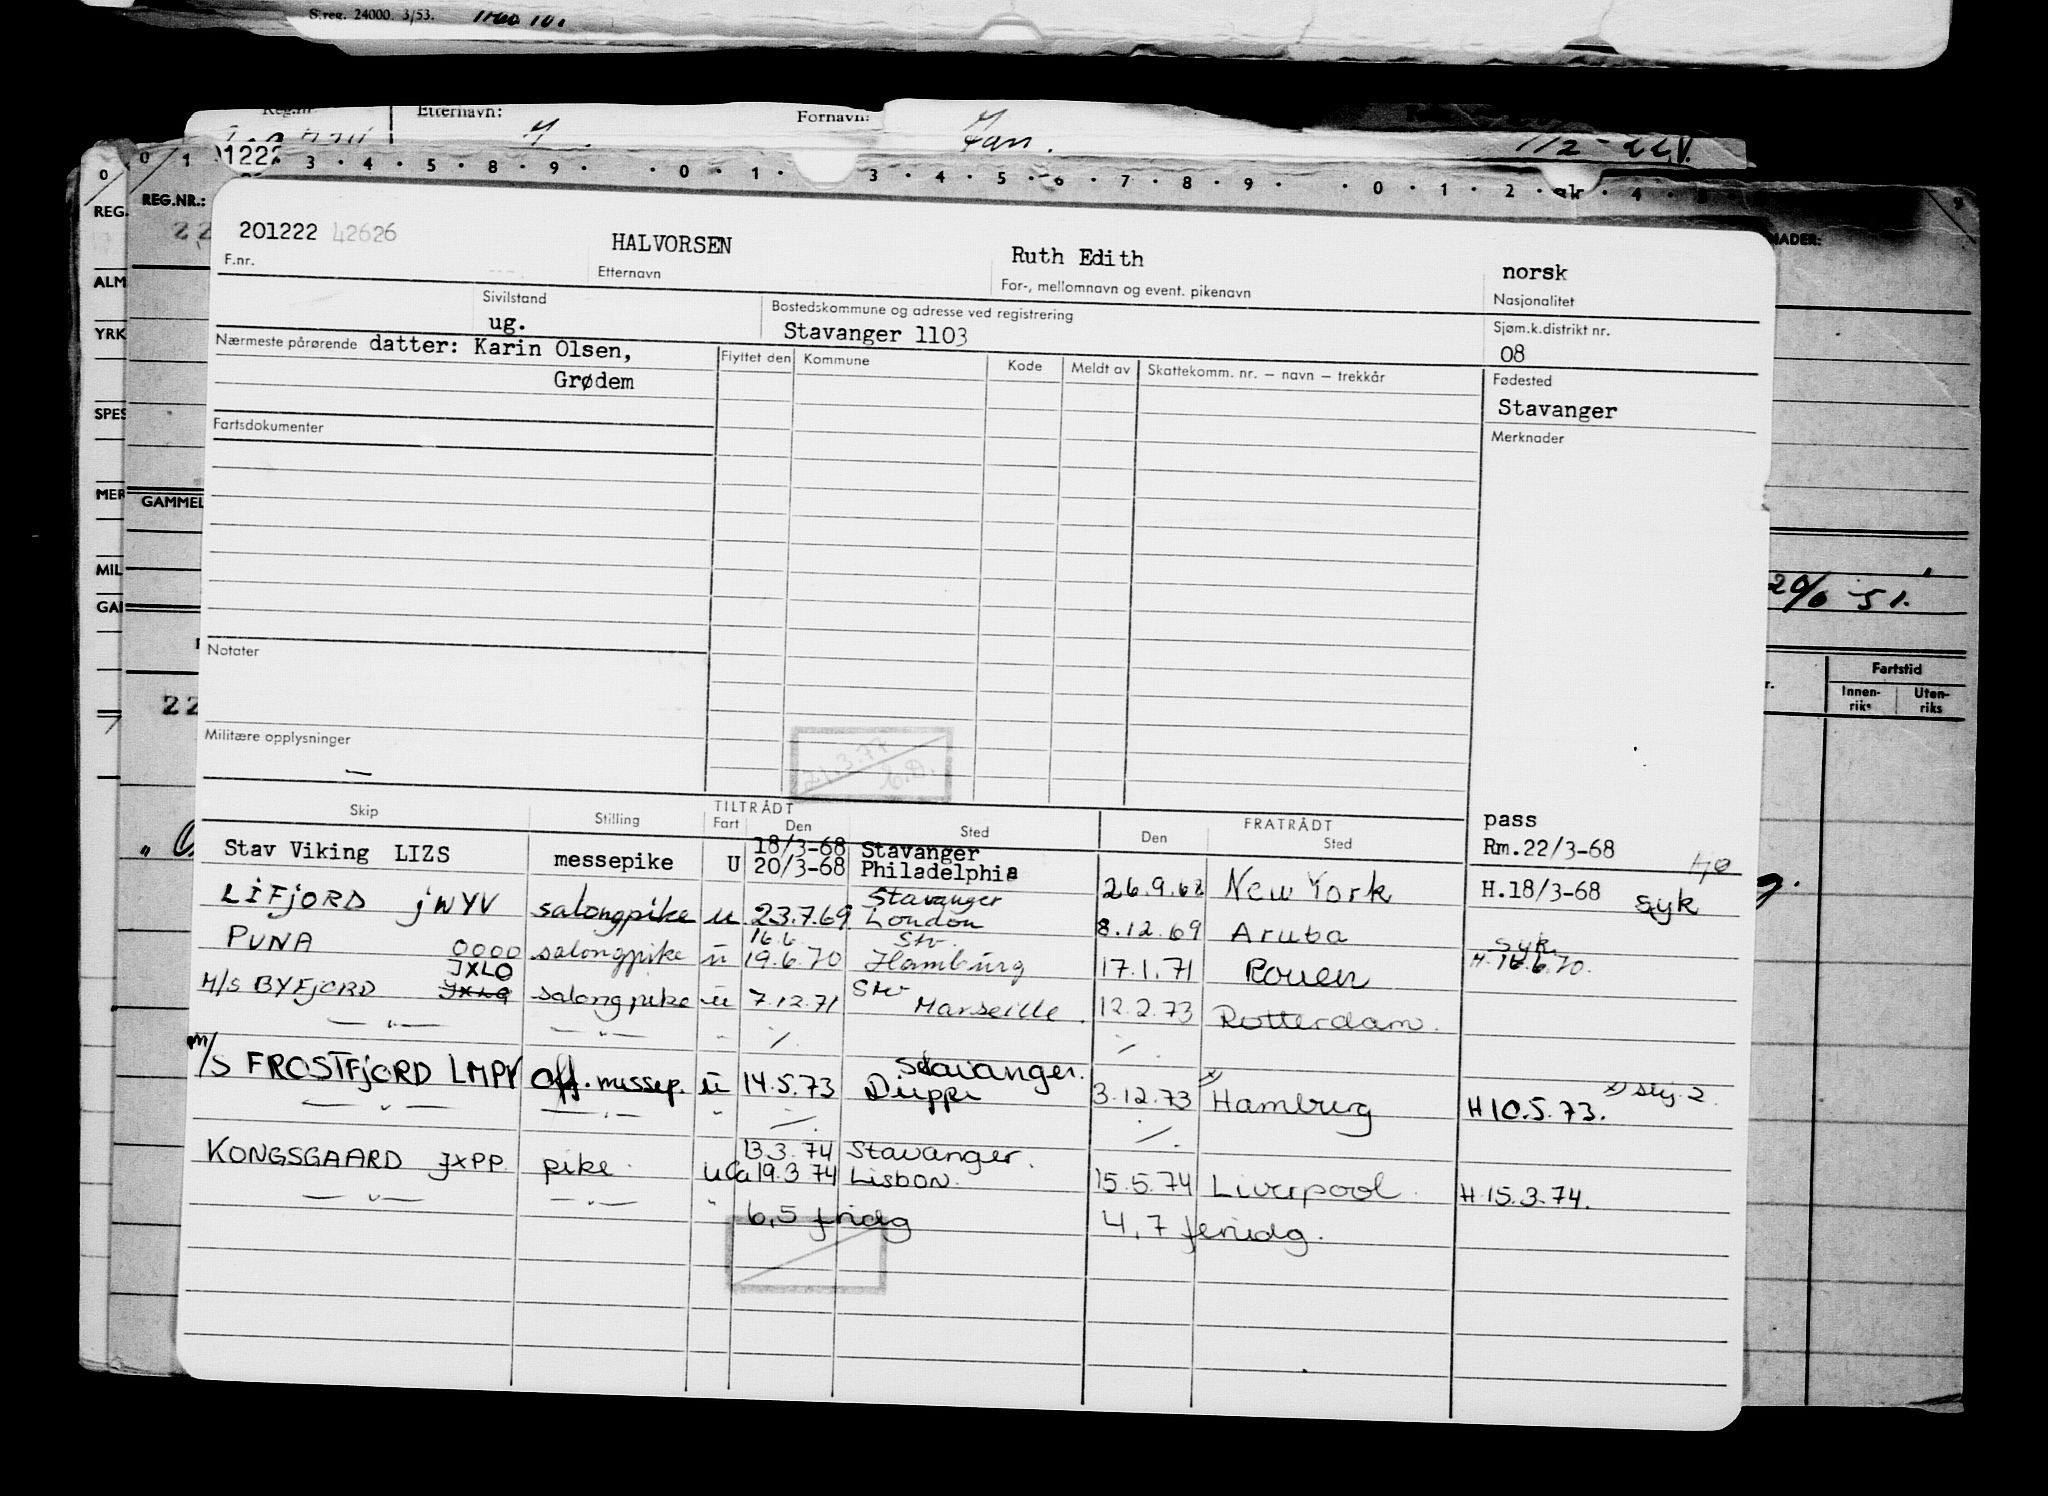 S.reg. 24000. 3/53.
Reg.nr. Etternavn: Fornavn:
H Jan.
1222 3 · 4 · 5 · 8 · 9 · · 0 · 1 · 3 · 4 · 5 · 6 · 7 · 8 · 9 · · 0 · 1 · 2 · 4
REG. REG.NR.:
201222 42626 HALVORSEN Ruth Edith norsk
F.nr. Etternavn For-, mellomnavn og event. pikenavn Nasjonalitet
Sivilstand Bostedskommune og adresse ved registrering Sjøm.k.distrikt nr.
ug. Stavanger 1103 08
Nærmeste pårørende datter: Karin Olsen, Flyttet den Kommune Kode Meldt av Skattekomm. nr. – navn – trekkår Fødested
Grødem Stavanger
Fartsdokumenter Merknader
ALM
YRK
SPES
MER GAMMEL
MIL
GAI
20/6 51.
Notater
Fartstid
Innen-riks Uten-riks
Militære opplysninger
21.3.77
—
Skip Stilling TILTRÅDT Fart Den Sted FRATRÅDT Den Sted pass
18/3-68 Stavanger Rm.22/3-68
Stav Viking LIZS messepike U 20/3-68 Philadelphia 26.9.68 New York H.18/3-68 syk
Stavanger
LIFJORD JWYV salongpike u 23.7.69 London 8.12.69 Aruba
16.6 Stv. syk
PUNA OOOO salongpike ü 19.6.70 Hamburg 17.1.71 Rouen H.16.6.70.
JXLO
M/S BYFJORD JXLO salongpike ü 7.12.71 Stv Marseille. 12.2.73 Rotterdam.
— " — — " — " ./. ./.
Stavanger.
M/S FROSTFJORD LMPV Off. messep. ü 14.5.73 Dieppe 3.12.73 x) Hamburg H 10.5.73. x) stj. 2.
— " — — " — " ./. ./.
13.3.74 Stavanger.
KONGSGAARD JXPP. pike. uCa 19.3 74 Lisbon. 15.5.74 Liverpool. H.15.3.74.
— " — — " — "
6,5 fridg 4,7 feriedg.